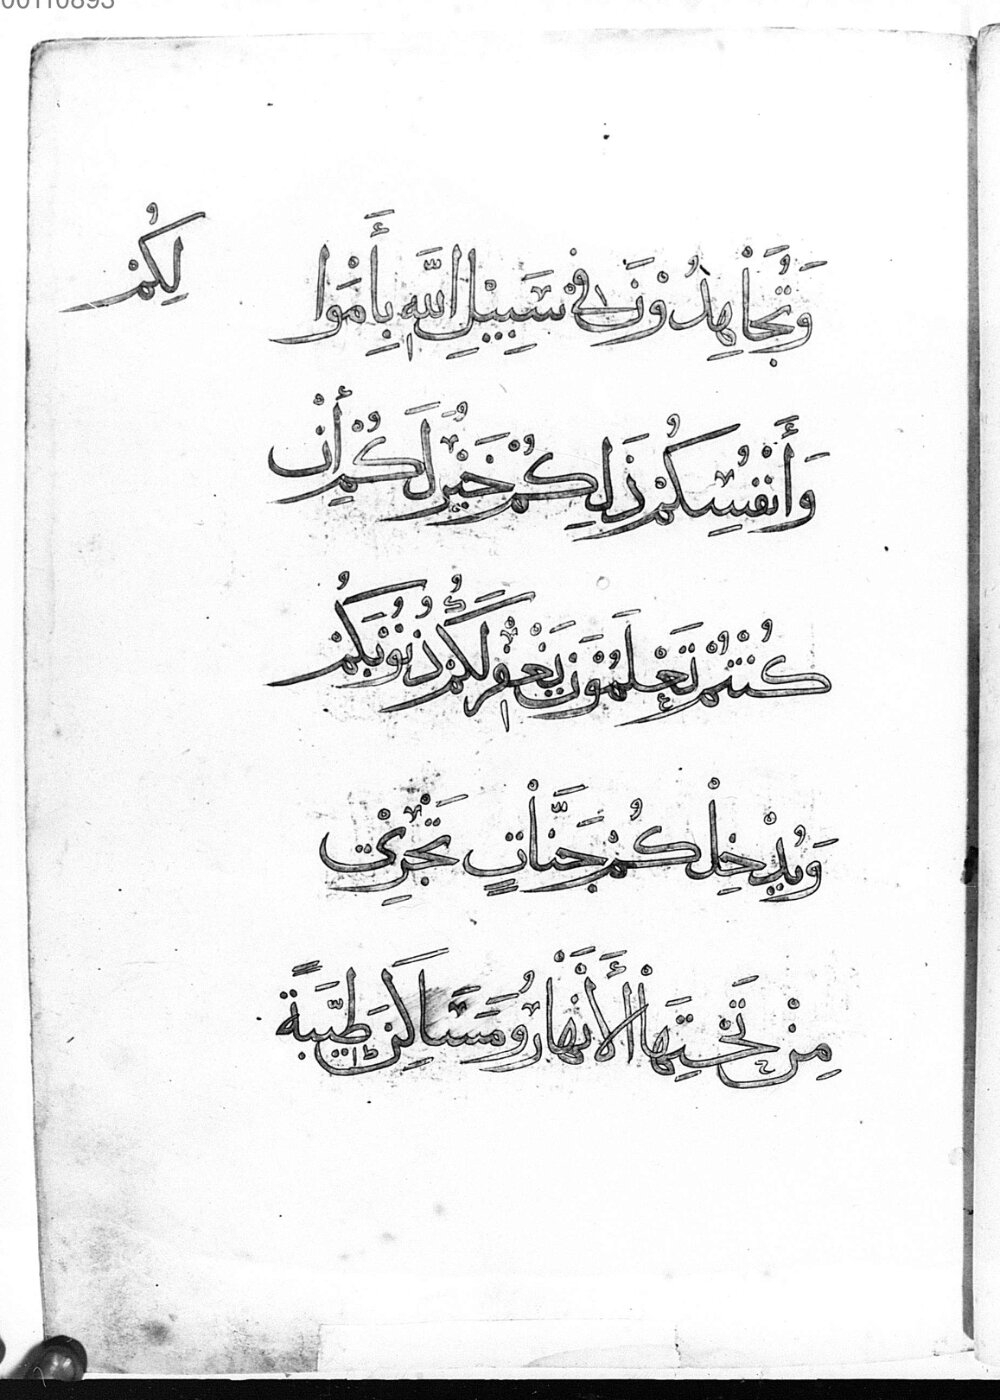 00110893
وَتُجَاهِدُوْنَ فِيْ سَبِيْلِ اللَّهِ بِأَمْوَا
لِكُمْ
وَأَنْفُسِكُمْ ذَلِكُمْ خَيْرٌ لَكُمْ أِنْ
كُنْتُمْ تَعْلَمُوْنَ يَغْفِرْ لَكُمْ ذُنُوْبَكُمْ
وَيُدْخِلْكُمْ جَنَّاتٍ تَجْرِيْ
مِنْ تَحْتِهَا الْأَنْهَارُ وَمَسَاكِنَ طَيِّبَةً